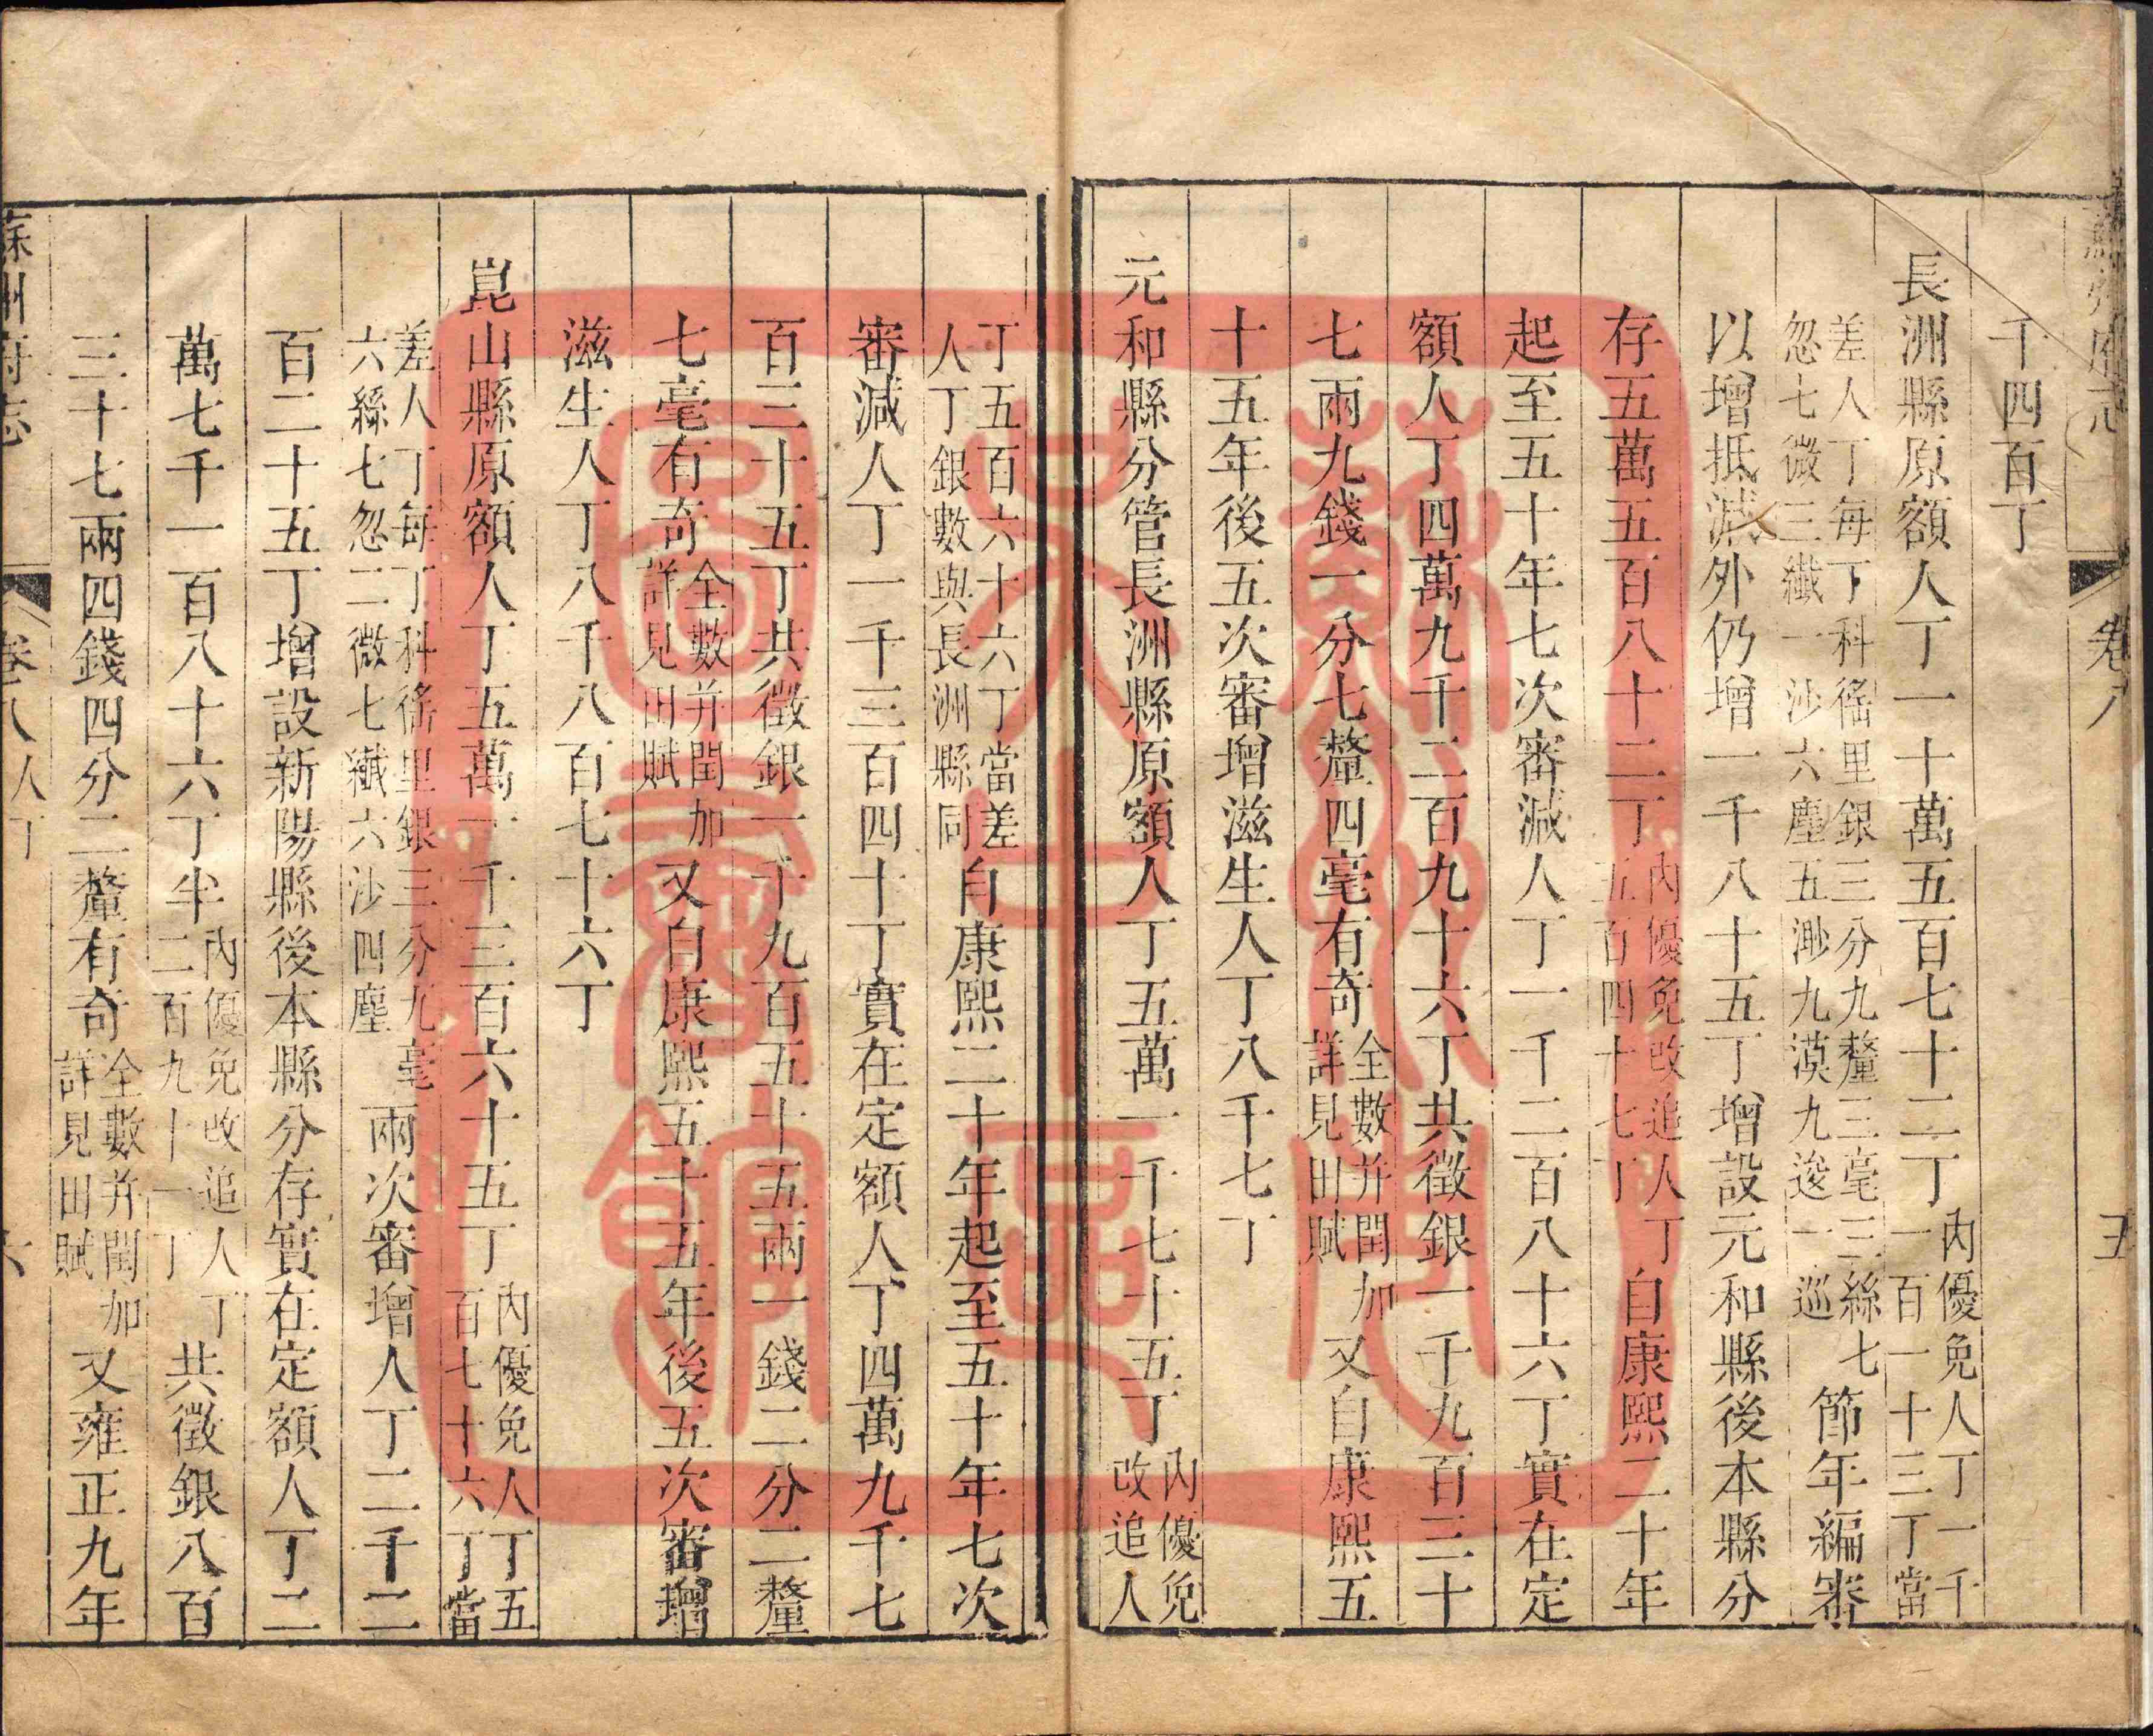 蘇州府志 卷八 五
千四百丁
長洲縣原額人丁一十萬五百七十二丁內優免人丁一千一百一十三丁當
差人丁每丁科徭里銀三分九釐三毫三絲七忽七微三纖一沙六塵五渺九漠九逡一巡節年編審
以增抵減外仍增一千八十五丁增設元和縣後本縣分
存五萬五百八十二丁內優免改追人丁五百四十七丁自康熙二十年
起至五十年七次審減人丁一千二百八十六丁實在定
額人丁四萬九千二百九十六丁共徵銀一千九百三十
七兩九錢一分七釐四毫有奇全數并閏加詳見田賦又自康熙五
十五年後五次審增滋生人丁八千七丁
元和縣分管長洲縣原額人丁五萬一千七十五丁內優免改追人
丁五百六十六丁當差人丁銀數與長洲縣同自康熙二十年起至五十年七次
審減人丁一千三百四十丁實在定額人丁四萬九千七
百三十五丁共徵銀一千九百五十五兩一錢二分二釐
七毫有奇全數并閏加詳見田賦又自康熙五十五年後五次審增
滋生人丁八千八百七十六丁
崑山縣原額人丁五萬一千三百六十五丁內優免人丁五百七十六丁當
差人丁每丁科徭里銀三分九毫六絲七忽二微七纖六沙四塵兩次審增人丁二千二
百二十五丁增設新陽縣後本縣分存實在定額人丁二
萬七千一百八十六丁半內優免改追人丁二百九十一丁共徵銀八百
三十七兩四錢四分二釐有奇全數并閏加詳見田賦又雍正九年
蘇州府志 卷八 人丁 六